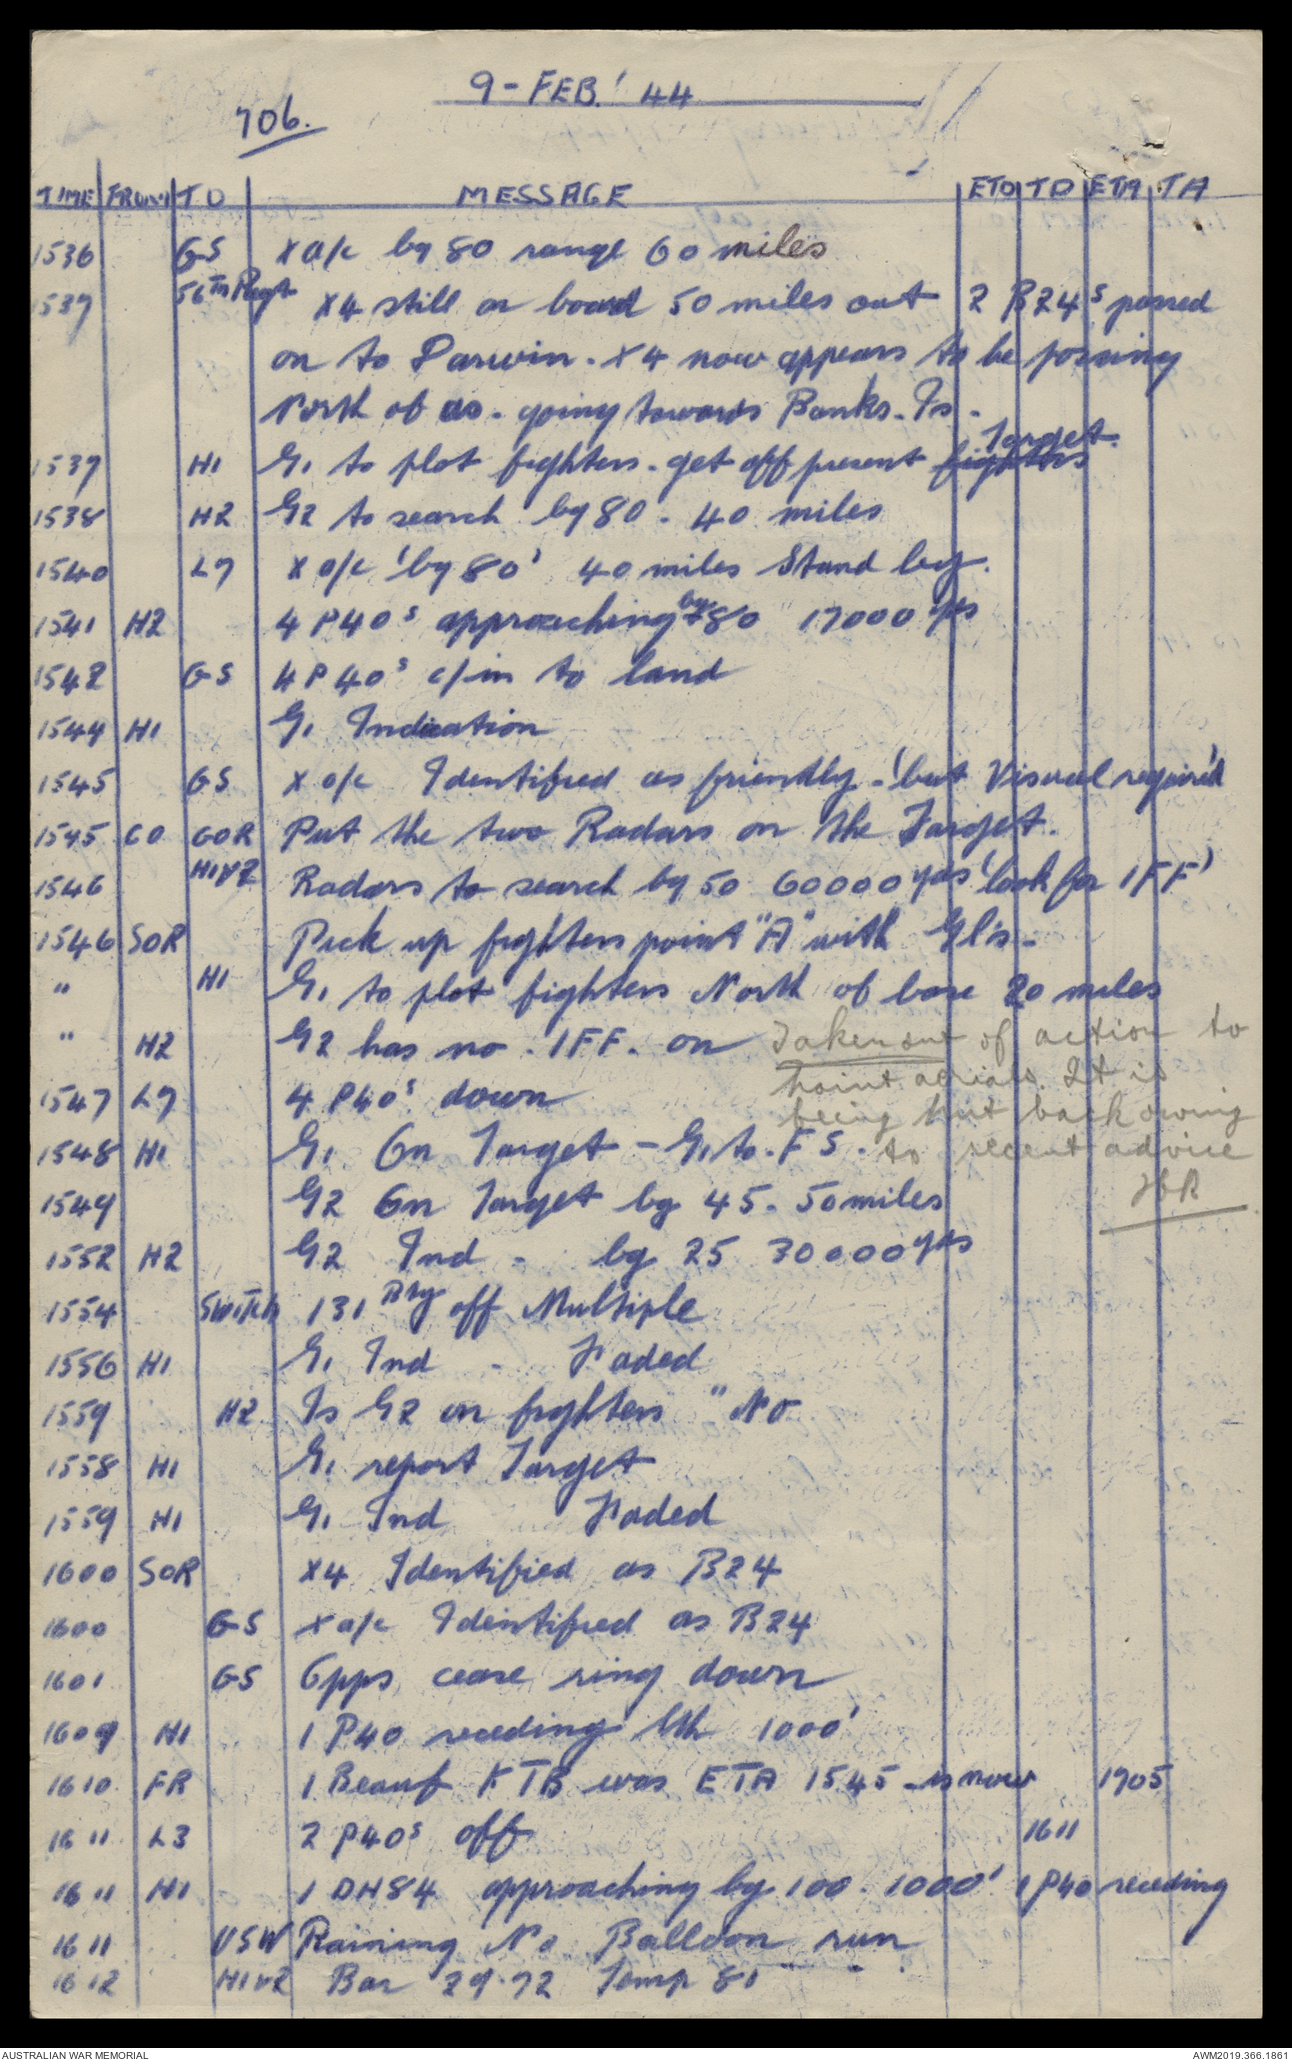 9-FEB' 44
706.
TIME FROM TO MESSAGE ETD TD ETA TA
1536 GS X a/c bg 80 range 60 miles
1537 56th Regt X4 still on board 50 miles out 2 B24s passed
on to Darwin. X4 now appears to be passing
North of us. going towards Banks. Is.
1537 H1 G1 to plot fighters. get off present fighters Target.
1538 H2 G2 to search bg 80. 40 miles
1540 L7 X a/c 'bg 80' 40 miles Stand by.
1541 H2 4 P40s approaching bg 80 17000 yds
1542 GS 4 P40s c/in to land
1544 H1 G1 Indication
1545 GS X a/c Identified as friendly - 'but Visual required'
1545 CO GOR Put the two Radars on the Target.
1546 H1 & 2 Radars to search bg 50 60000 yds 'look for IFF'
1546 SOR Pick up fighters point "A" with Gls.
" H1 G1 to plot fighters North of base 20 miles
" H2 G2 has no. IFF. on
Taken out of action to
point aerials. It is
being put back owing
to recent advice
1547 L7 4 P40s down
1548 H1 G1 On Target - G1 to. F S.
1549 G2 On Target bg 45. 50 miles
1552 H2 G2 Ind - bg 25 30000 yds
1554 Switch 131 Bty off Multiple
1556 H1 G1 Ind - Faded
1559 H2 Is G2 on fighters " No
1558 H1 G1 report Target
1559 H1 G1 Ind Faded
1600 SOR X4 Identified as B24
1600 GS X a/c Identified as B24
1601 GS Opps cease ring down
1609 H1 1 P40 receding Nth 1000'
1610 FR 1 Beauf KTB was ETA 1545 - is now 1705
1611 L3 2 P40s off 1611
1611 H1 1 DH84 approaching bg 100. 1000' 1 P40 receding
1611 VSW Raining No Balloon run
1612 H1 & 2 Bar 29.72 Temp 81
AUSTRALIAN WAR MEMORIAL AWM2019.366.1861